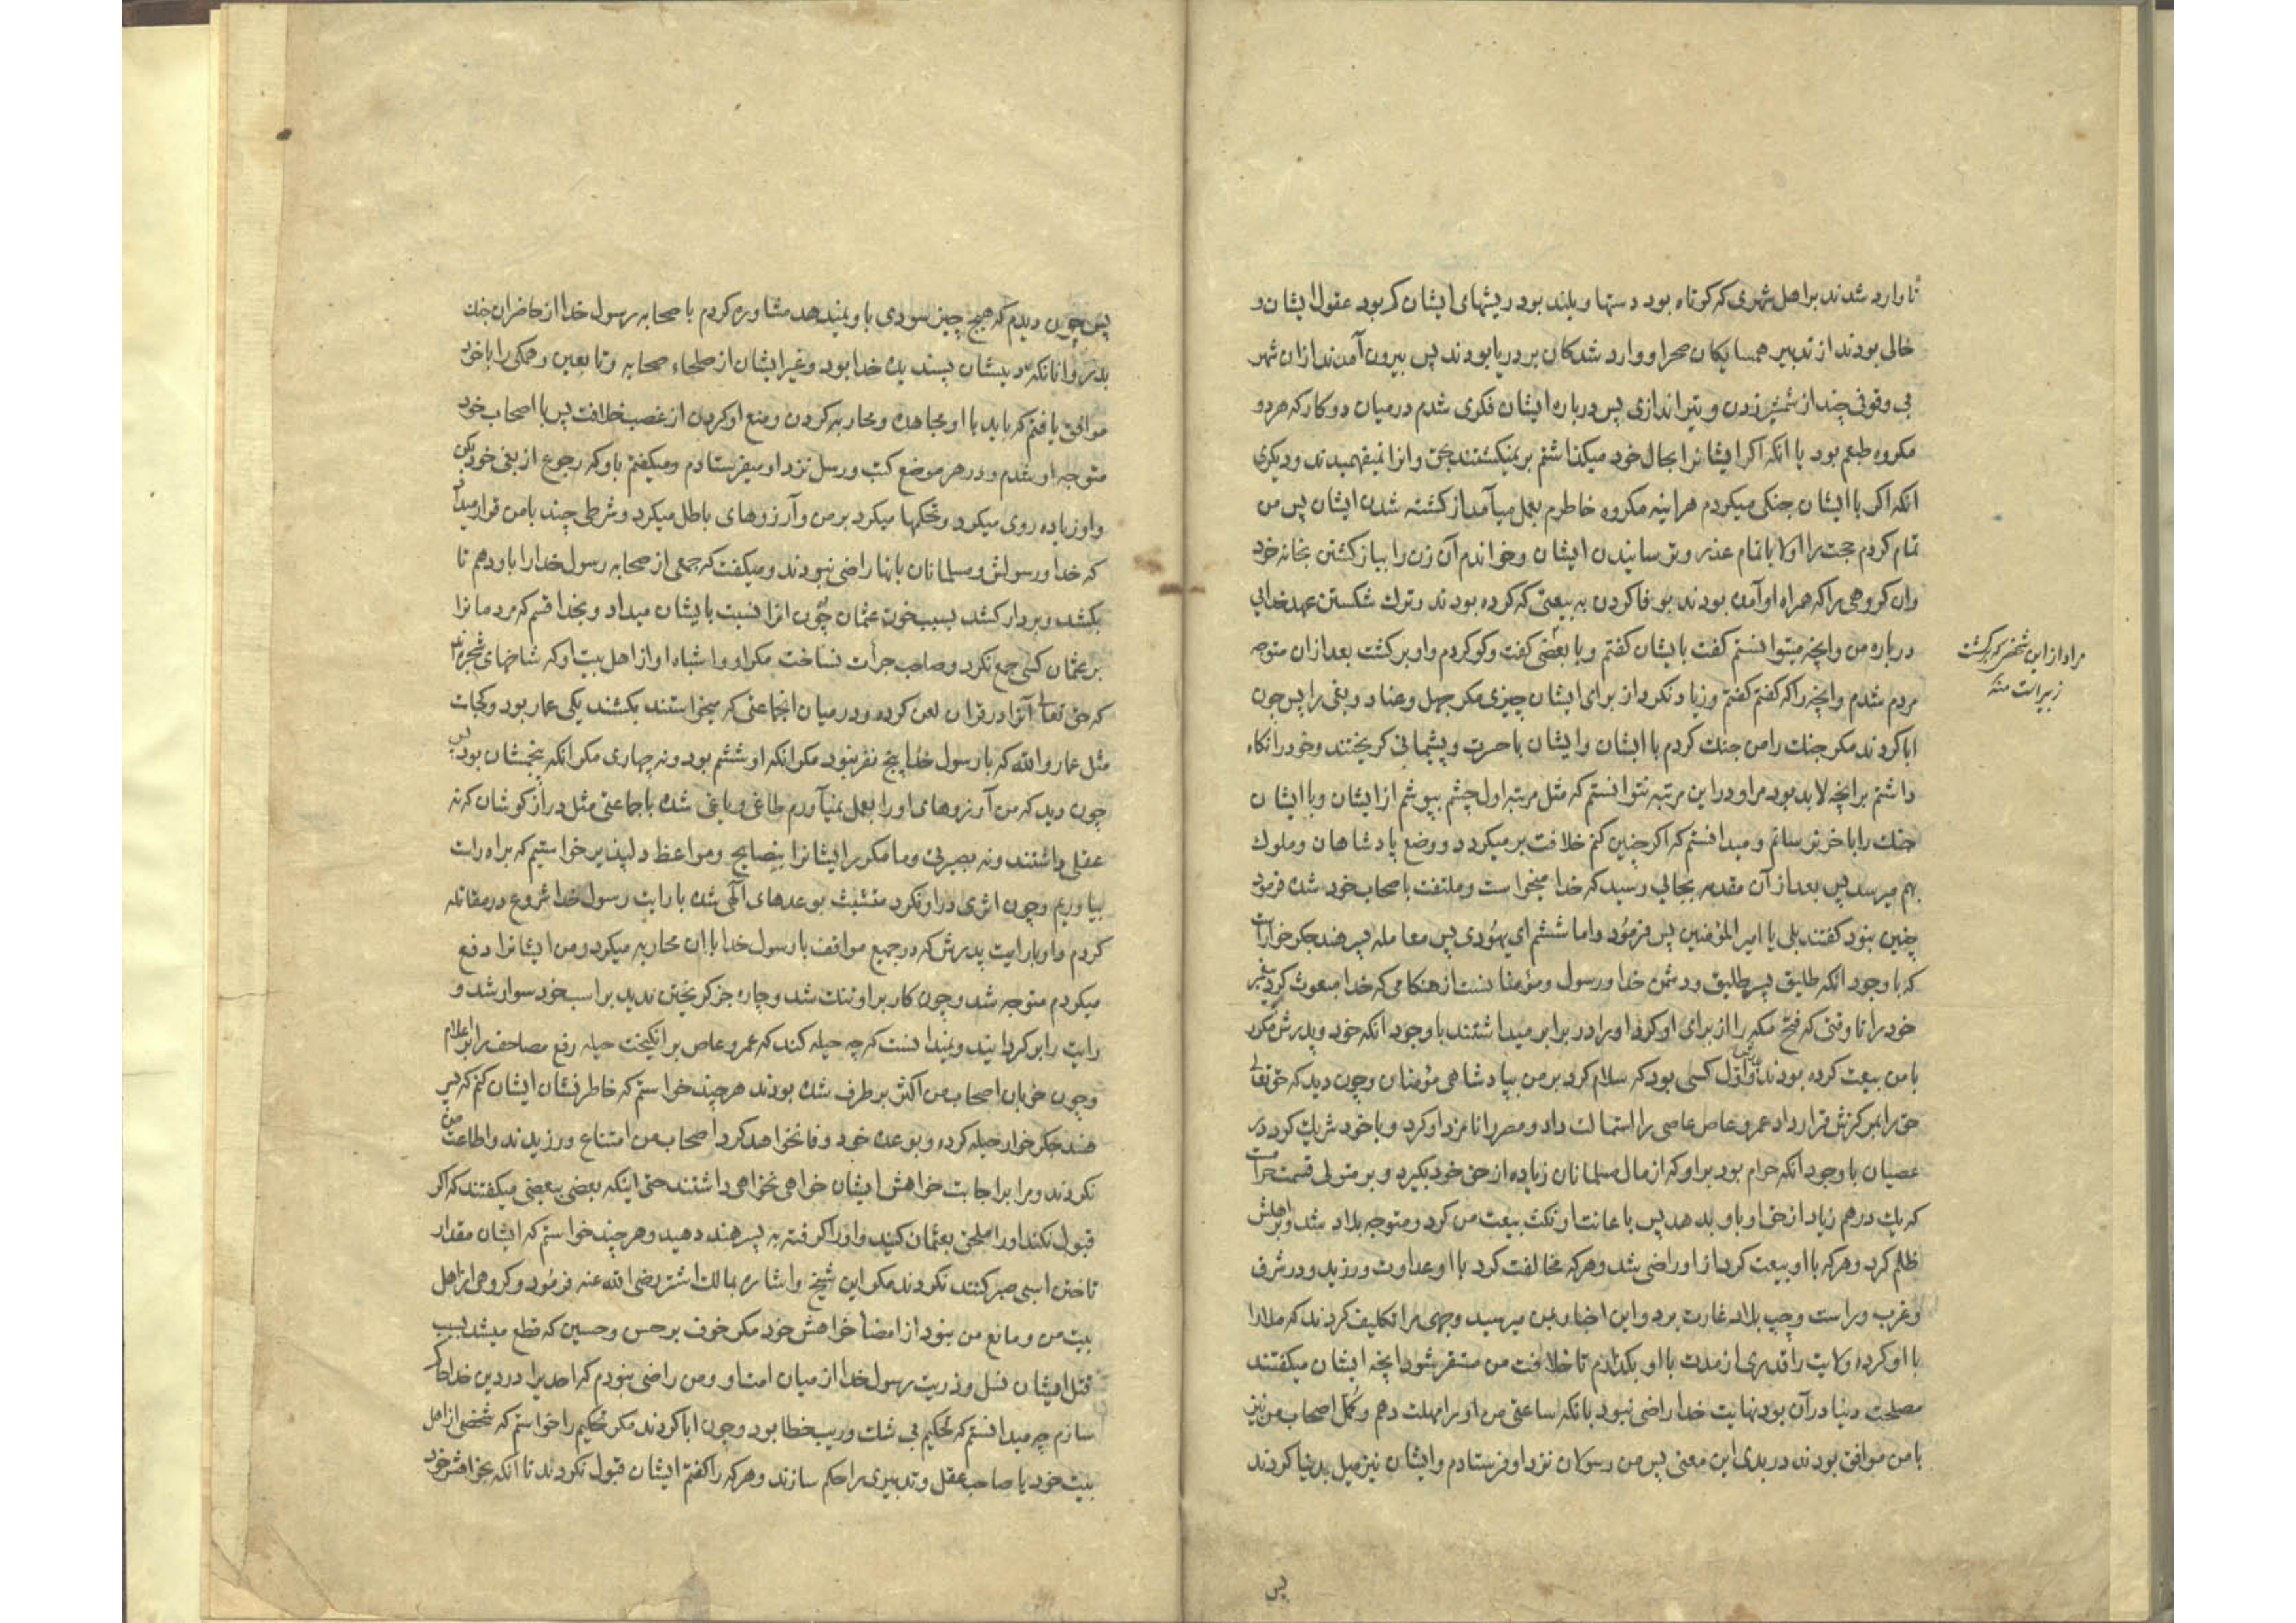 تا وارد شدند بر اهل شهری که کوتاه بود دستها و بلند بود ریشهای ایشان کم بود عقول ایشان و
خالی بودند از تدبیر همسایکان صحرا و وارد شدکان بر دریا بودند پس بیرون آمدند ازان شهر
بی وقوفی چند از شمشیر زدن و تیر اندازی پس درباره ایشان فکری شدم درمیان دو کار که هر دو
مکروه طبعم بود یا انکه اکر ایشانرا بحال خود میکذاشتم بر نمیکشتند بحق و انرا نمیفهمیدند و دیکری
انکه اکر با ایشان جنکی میکردم هراینه مکروه خاطرم بعمل میآمد از کشته شدن ایشان پس من
تمام کردم حجت را اولا باتمام عذر و ترسانیدن ایشان و خواندم آن زن را بباز کشتن بخانه خود
وان کروهی را که همراه او آمده بودند بوفا کردن به بیعتی که کرده بودند و ترک شکستن عهد خدایی
درباره من و انچه میتوانستم کفت بایشان کفتم و با بعضی کفت وکو کردم و او برکشت بعد ازان متوجه
مراد از این شخص که برکشت
زبیر است منه
مردم شدم و انچه را که کفتم کفتم و زیاد نکرد از برای ایشان چیزی مکر جهل و عناد و بغی را پس چون
ابا کردند مکر جنک را من جنک کردم با ایشان و ایشان با حسرت و پشیمانی کریختند و خود را نکاه
داشتم بر انچه لابد بود مرا و دراین مرتبه نتوانستم که مثل مرتبه اول چشم بپوشم از ایشان و با ایشان
جنک را باخر نرسانم و میدانستم که اکر چنین کنم خلافت بر میکردد و وضع پادشاهان و ملوک
بهم میرسد پس بعد از آن مقدمه بجائی رسید که خدا میخواست و ملتفت باصحاب خود شده فرمود
چنین نبود کفتند بلی یا امیر المؤمنین پس فرمود و اما ششم ای یهودی پس معامله پسر هند جکر خوار است
که با وجود انکه طلیق پسر طلیق و دشمن خدا و رسول و مؤمنانست از هنکامی که خدا مبعوث کرد پیغمبر
خود را تا وقتی که فتح مکه را از برای او کرد او را در برابر میداشتند با وجود انکه خود و پدرش مکرر
با من بیعت کرده بودند و اول کسی بود که سلام کرد بر من بپادشاهی مؤمنان و چون دید که حق تعالی
حق را بمرکزش قرار داد عمرو عاص عاصی را استمالت داد و مصر را نامزد او کرد و با خود شریک کرد در
عصیان با وجود انکه حرام بود بر او که از مال مسلمانان زیاده از حق خود بکیرد و بر متولی قسمت حرامست
که یک درهم زیاد از حق او باو بدهد پس باعانت او نکث بیعت من کرد و متوجه بلاد شد و بر اهلش
ظلم کرد و هرکه با او بیعت کرد از او راضی شد و هرکه مخالفت کرد با او عداوت ورزید و در شرق
و غرب و راست و چپ بلاد غارت برد و این اخبار بمن میرسید و جمعی مرا تکلیف کردند که مدارا
با او کرده ولایت را قدری از مدت با او بکذارم تا خلافت من مستقر شود انچه ایشان میکفتند
مصلحت دنیا در آن بود نهایت خدا راضی نبود بانکه ساعتی من او را مهلت دهم و کمل اصحاب من نیز
با من موافق بودند در بدی این معنی پس من رسولان نزد او فرستادم و ایشان نیز میل بدنیا کردند
پس
پس چون دیدم که هیچ چیز سودی باو نمیدهد مشاوره کردم با صحابه رسول خدا از حاضران جنک
بدر و انانکه دینشان پسندیده خدا بود و غیر ایشان از صلحاء صحابه و تابعین و همکی را با خود
موافق یافتم که باید با او مجاهده و محاربه کردن و منع او کردن از غصب خلافت پس با اصحاب خود
متوجه او شدم و در هر موضع کتب و رسل نزد او میفرستادم و میکفتم باو که رجوع از بغی خود بکن
و او زیاده روی میکرد و تحکمها میکرد بر من و آرزوهای باطل میکرد و شرطی چند با من قرار میداد
که خدا و رسولش و مسلمانان بانها راضی نبودند و میکفت که جمعی از صحابه رسول خدا را باو دهم تا
بکشد و بر دار کشد بسبب خون عثمان چون انرا نسبت بایشان میداد و بخدا قسم که مردمانرا
بر عثمان کسی جمع نکرد و صاحب جرأت نساخت مکر او و اشباه او از اهل بیت او که شاخهای شجره اند
که حق تعالی آنرا در قران لعن کرده و درمیان انجماعتی که میخواستند بکشند یکی عمار بود و کجاست
مثل عمار و الله که با رسول خدا پنج نفر نبود مکر انکه او ششم بود و نه چهاری مکر انکه پنجمشان بود پس
چون دید که من آرزوهای او را بعمل نمیآورم طاغی و یاغی شده با جماعتی مثل دراز کوشان که نه
عقلی داشتند و نه بصیرتی و ما مکرر ایشانرا بنصایح و مواعظ دلپذیر خواستیم که براه راست
بیاوریم و چون اثری در او نکرد متشبث بوعدهای آلهی شده با رایت رسول خدا شروع در مقاتله
کردم و او با رایت پدرش که در جمیع مواقف با رسول خدا با ان محاربه میکرد و من ایشانرا دفع
میکردم متوجه شد و چون کار بر او تنک شد و چاره جز کریختن ندید بر اسب خود سوار شد و
رایت را بر کردانید و نمیدانست که چه حیله کند که عمرو عاص بر انکیخت حیله رفع مصاحف را بر اعلام
و چون خوبان اصحاب من اکثر بر طرف شده بودند هر چند خواستم که خاطر نشان ایشان کنم که پسر
هند جکر خوار حیله کرده و بوعده خود وفا نخواهد کرد اصحاب من امتناع ورزیدند و اطاعت من
نکردند و مرا بر اجابت خواهش ایشان خواهی نخواهی داشتند حتی اینکه بعضی ببعضی میکفتند که اکر
قبول نکند او را ملحق بعثمان کنید و او را کرفته به پسر هند دهید و هر چند خواستم که ایشان مقدار
تاختن اسبی صبر کنند نکردند مکر این شیخ و اشاره بمالک اشتر رضی الله عنه فرمود و کروهی از اهل
بیت من و مانع من نبود از امضأ خواهش خود مکر خوف بر حسن و حسین که قطع میشد بسبب
قتل ایشان نسل و ذریت رسول خدا از میان امت او و من راضی نبودم که احدیرا در دین خدا حاکم
سازم چه میدانستم که تحکیم بی شک و ریب خطا بود و چون ابا کردند مکر تحکیم را خواستم که شخصی از اهل
بیت خود یا صاحب عقل و تدبیری را حکم سازند و هر که را کفتم ایشان قبول نکردند تا انکه بخواهش خود